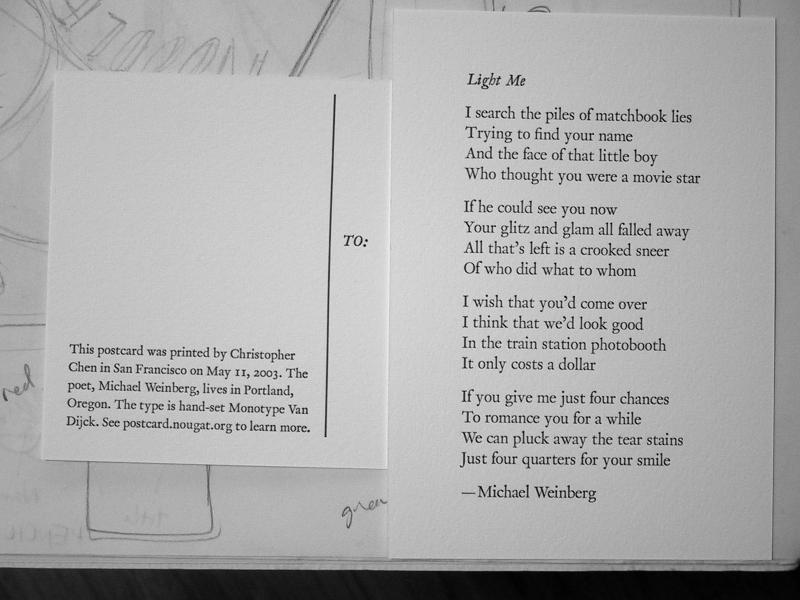 TO:
This postcard was printed by Christopher
Chen in San Francisco on May 11, 2003. The
poet, Michael Weinberg, lives in Portland,
Oregon. The type is hand-set Monotype Van
Dijck. See postcard.nougat.org to learn more.
Light Me
I search the piles of matchbook lies
Trying to find your name
And the face of that little boy
Who thought you were a movie star
If he could see you now
Your glitz and glam all falled away
All that's left is a crooked sneer
Of who did what to whom
I wish that you'd come over
I think that we'd look good
In the train station photobooth
It only costs a dollar
If you give me just four chances
To romance you for a while
We can pluck away the tear stains
Just four quarters for your smile
—Michael Weinberg
red
green